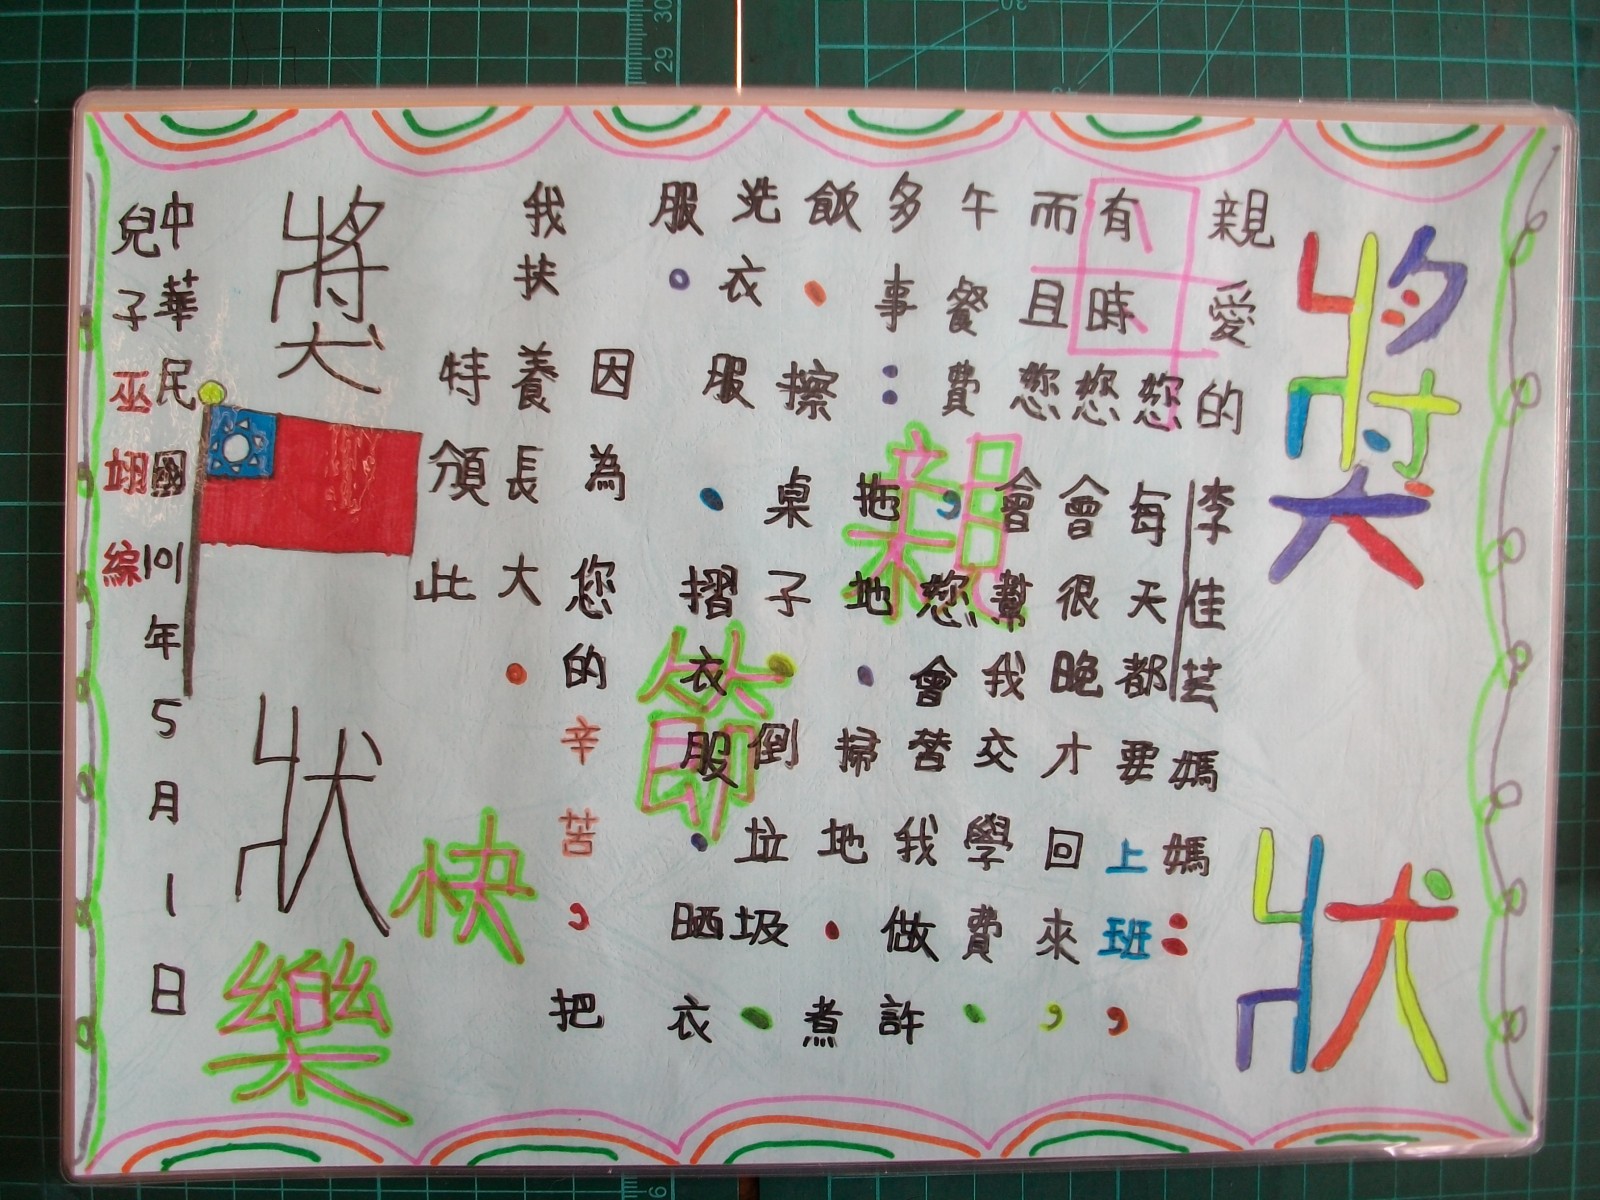 獎狀
親愛的李佳芸媽媽：
您每天都要上班，
有時您會很晚才回來，
而且您會幫我交學費、
午餐費，您會替我做許
多事：拖地、掃地、煮
飯、擦桌子、倒垃圾、
洗衣服、摺衣服、晒衣
服。
因為您的辛苦，把
我扶養長大。
特頒此
獎狀
母親節快樂
中華民國101年5月1日
兒子巫翊綜